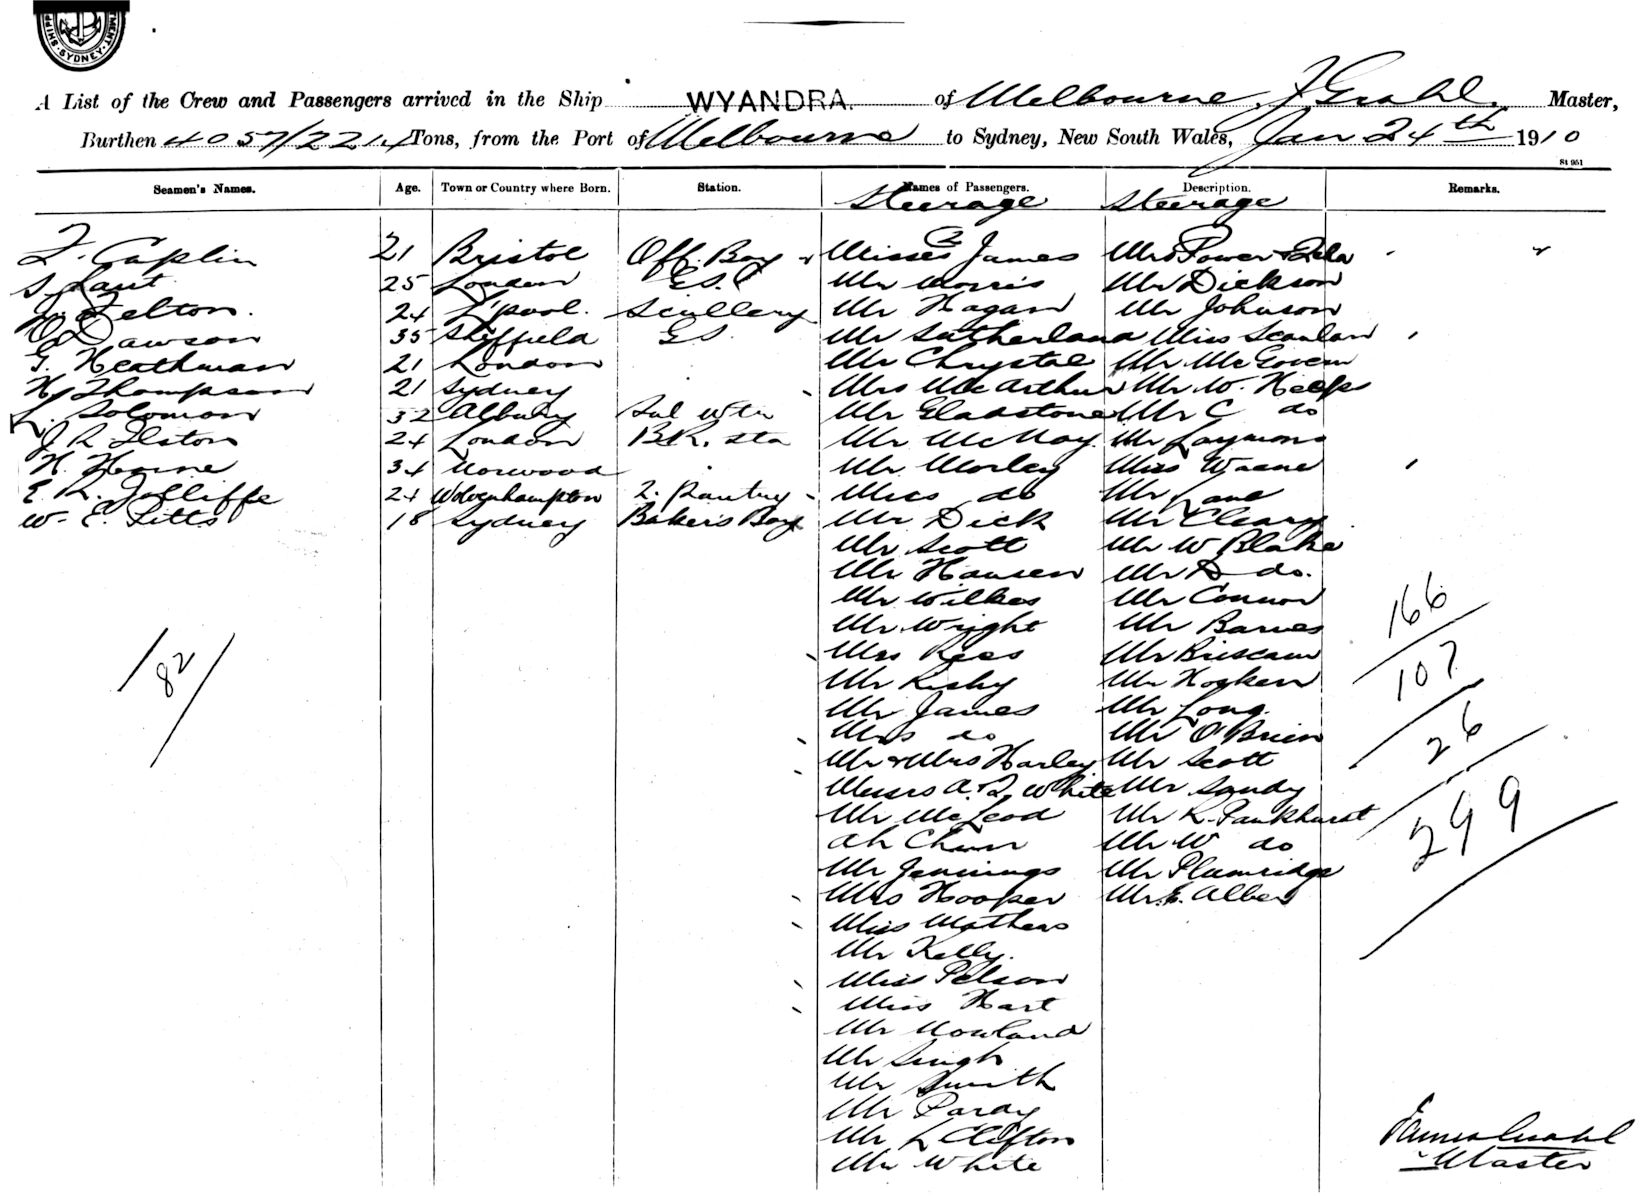 SYDNEY
A List of the Crew and Passengers arrived in the Ship WYANDRA. of Melbourne, Master,
Burthen 4057/2214 Tons, from the Port of Melbourne to Sydney, New South Wales, Jan 24th 1910
St 951
Seamen's Names. Age. Town or Country where Born. Station. Names of Passengers. Description. Remarks.
Steerage Steerage
F. Caplin 21 Bristol Off. Boy 2 Misses James Mrs Power &
S. 25 London G.S. Mr Morris Mr Dickson
Felton. 24 L'pool. Scullery Mr Hagan Mr Johnson
Dawson 35 Sheffield G.S. Mr Sutherland Miss Scanlan
G. Heathman 21 London Mr Chrystal Mr McGovern
H. Thompson 21 Sydney Mrs McArthur Mr W. Heeps
L. Solomon 32 Albury Sal Wtr Mr Gladstone Mr C do
J R Elston 24 London B.R. Sta Mr McMay Mr Laymons
H. Horne 34 Norwood Mr Morley Miss
E. R. Jolliffe 24 Wolverhampton 2. Pantry Miss do Mr Lane
W. E. Pitts 18 Sydney Baker's Boy Mr Dick Mr Cleary
Mr Scott Mr W Blake
Mr Hansen Mr D do.
Mr Wilkes Mr Connor
Mr Wright Mr Barnes
Mrs Rees Mr
Mr Mr Hosken
Mr James Mr Long.
Mrs do Mr O'Brien
Mr & Mrs Harley Mr Scott
Messrs A. & Q. White Mr Sandy
Mr McLeod Mr R. Pankhurst
Ah Chun Mr W do
Mr Jennings Mr Plumridge
Mrs Hooper Mr E. Albers
Miss Mathews
Mr Kelly.
Miss Pelson
Miss Hart
Mr Nowland
Mr Singh
Mr Smith
Mr Pardy
Mr L Clifton
Mr White
82
166
107
26
299
Master